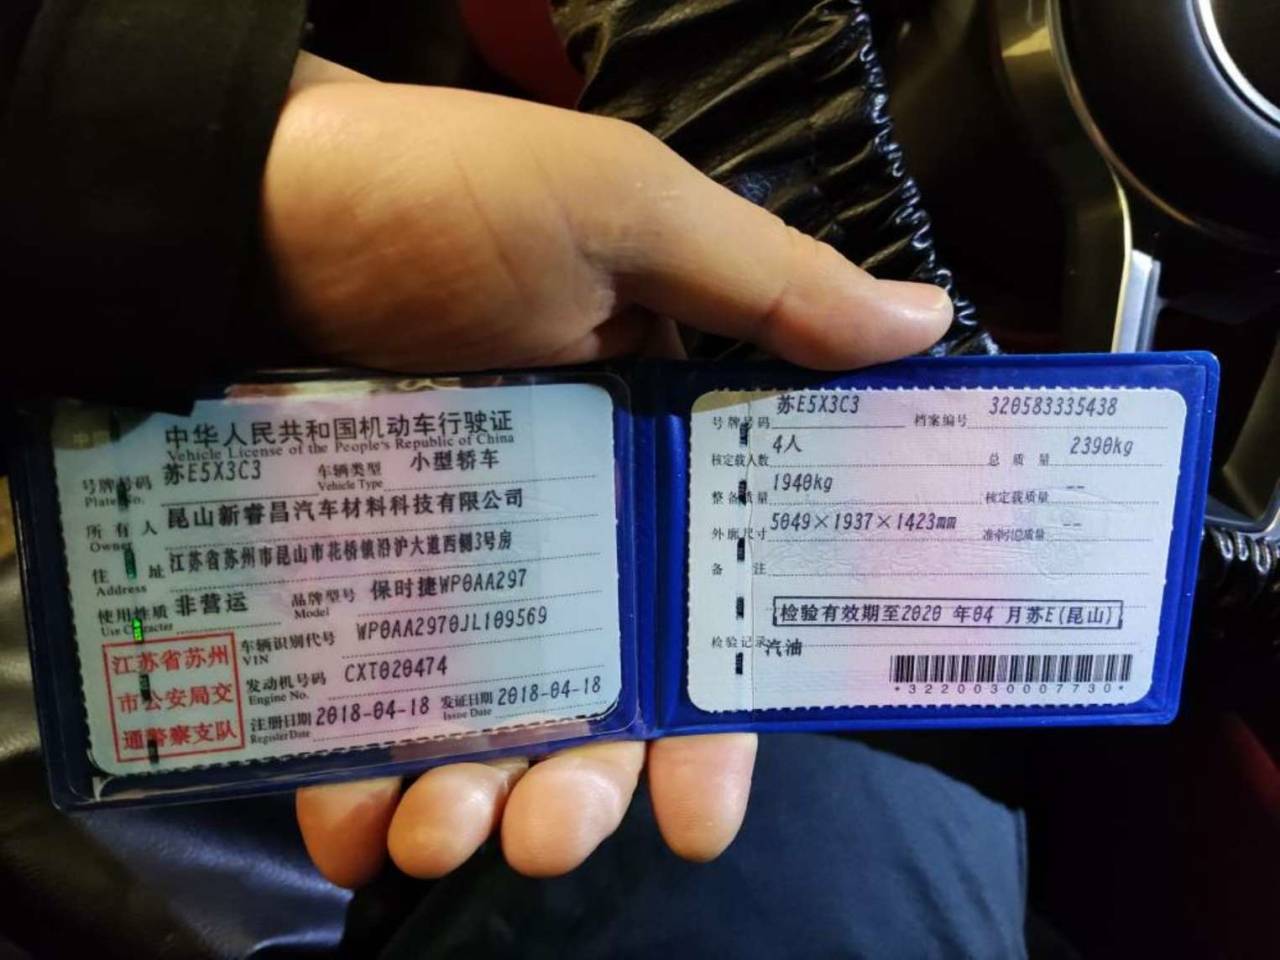 中华人民共和国机动车行驶证
Vehicle License of the People's Republic of China
号牌号码 苏E5X3C3 车辆类型 小型轿车
Plate No. Vehicle Type
所有人 昆山新睿昌汽车材料科技有限公司
Owner
住址 江苏省苏州市昆山市花桥镇沿沪大道西侧3号房
Address
使用性质 非营运 品牌型号 保时捷WP0AA297
Use Character Model
江苏省苏州
市公安局交
通警察支队
车辆识别代号 WP0AA2970JL109569
VIN
发动机号码 CXT020474
Engine No.
注册日期 2018-04-18 发证日期 2018-04-18
Register Date Issue Date
号牌号码 苏E5X3C3 档案编号 320583335438
核定载人数 4人 总质量 2390kg
整备质量 1940kg 核定载质量 --
外廓尺寸 5049×1937×1423mm 准牵引总质量 --
备注
检验有效期至2020年04月苏E(昆山)
检验记录 汽油
*3220030007730*